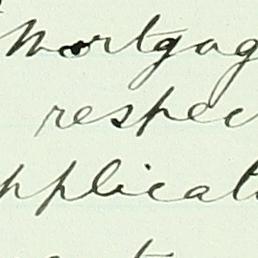 Mortgag
respec
pplicat